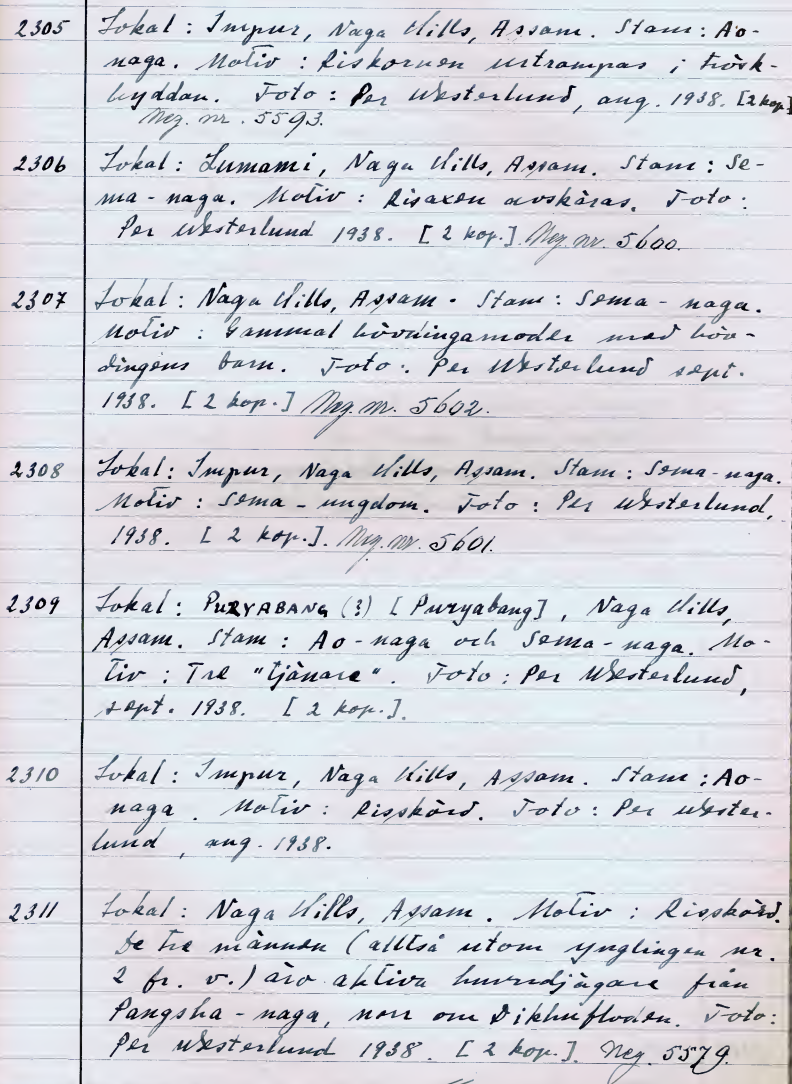 2305 Lokal: Impur, Naga Hills, Assam. Stam: Ao-
naga. Motiv: Riskornen urtrampas i trösk-
hyddan. Foto: Per Westerlund, aug. 1938. [2 kop.]
Neg. nr. 5593.
2306 Lokal: Lumami, Naga Hills, Assam. Stam: Se-
ma-naga. Motiv: Risaxen avskäras. Foto:
Per Westerlund 1938. [2 kop.] Neg. nr. 5600.
2307 Lokal: Naga Hills, Assam. Stam: Sema-naga.
Motiv: Gammal hövdingamoder med höv-
dingens barn. Foto: Per Westerlund sept.
1938. [2 kop.] Neg. nr. 5602.
2308 Lokal: Impur, Naga Hills, Assam. Stam: Sema-naga.
Motiv: Sema-ungdom. Foto: Per Westerlund,
1938. [2 kop.]. Neg. nr. 5601.
2309 Lokal: PURYABANG (?) [Puryabang], Naga Hills,
Assam. Stam: Ao-naga och Sema-naga. Mo-
tiv: Tre "tjänare". Foto: Per Westerlund,
sept. 1938. [2 kop.].
2310 Lokal: Impur, Naga Hills, Assam. Stam: Ao-
naga. Motiv: Risskörd. Foto: Per Wester-
lund, aug. 1938.
2311 Lokal: Naga Hills, Assam. Motiv: Risskörd.
De tre männen (alltså utom ynglingen nr.
2 fr. v.) äro aktiva huvudjägare från
Pangsha-naga, norr om Dikhufloden. Foto:
Per Westerlund 1938. [2 kop.]. Neg. 5579.